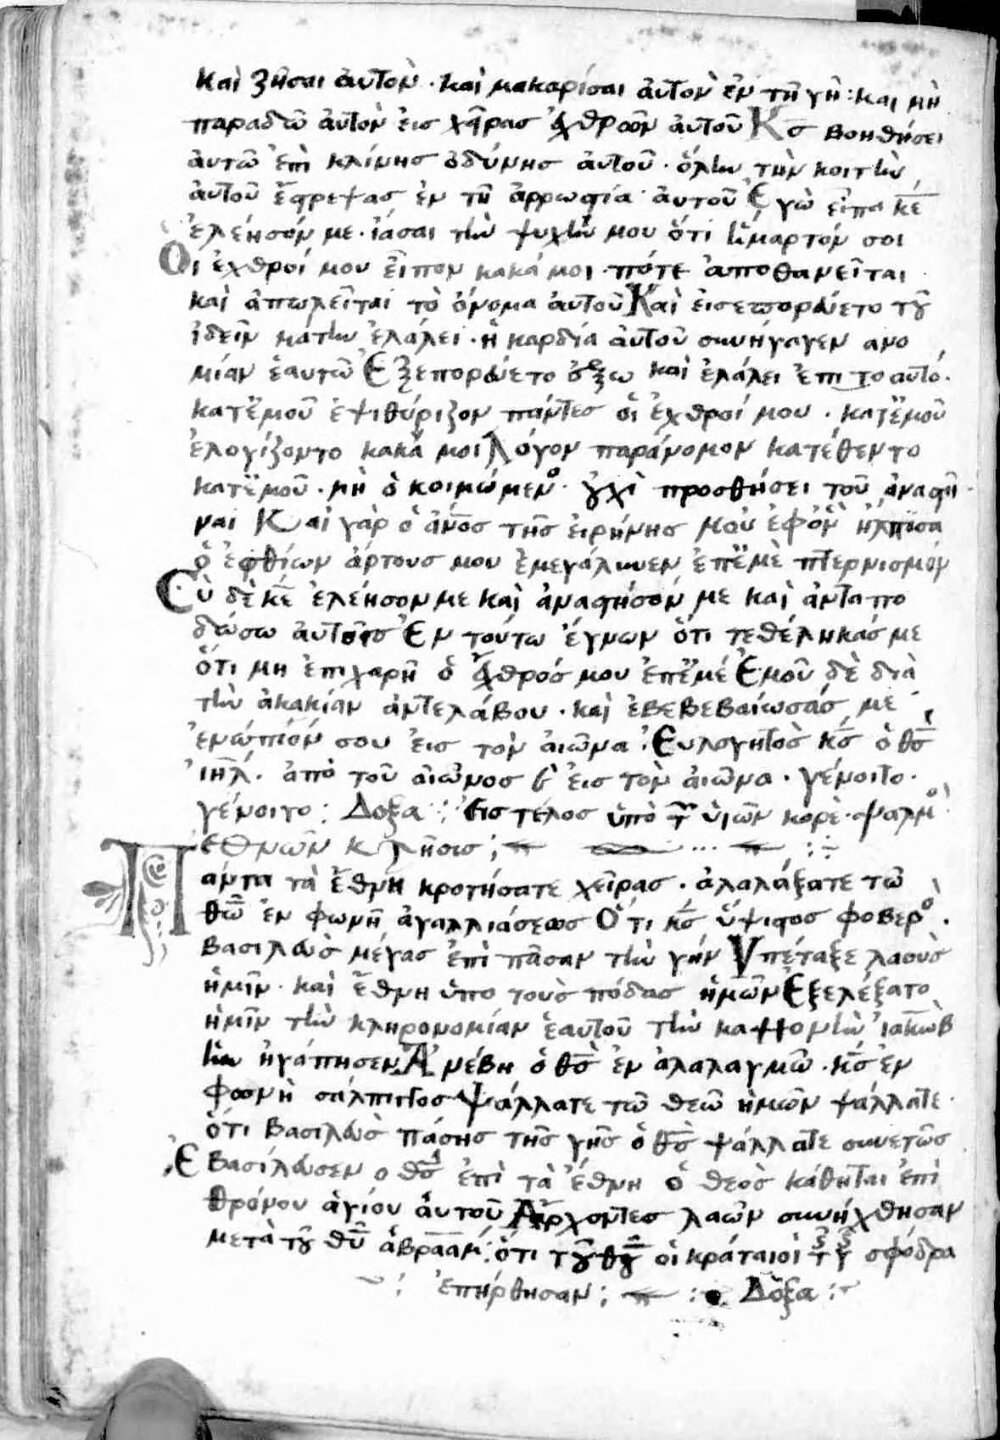 καὶ ζῆσαι ἀυτὸν · καὶ μακαρίσαι ἀυτὸν ἐν τῆ γῆ : και μὴ
παραδῶ ἀυτὸν ἐις χεῖρασ ἐχθρῶν ἀυτοῦ Κς βοηθήσει
ἀυτῶ ἐπὶ κλίνης ὀδύνης ἀυτοῦ · ὅλην τὴν κοιτὴν
ἀυτοῦ ἔστρεψας ἐν τῆ ἀρρωστία ἀυτοῦ Ἐγὼ εἶπα κε
ἐλεήσόν με · ἰάσαι τὴν ψυχήν μου ὅτι ἥμαρτόν σοι
Ὁι ἐχθροί μου εἶπον κακά μοι · πότε ἀποθανεῖται
καὶ ἀπωλεῖται τὸ ὄνομα ἀυτοῦ Καὶ ἐισεπορεύετο τοῦ
ἰδεῖν μάτην ἐλάλει · ἡ καρδία ἀυτοῦ συνήγαγεν ανο
μίαν ἑαυτῶ Ἐξεπορεύετο ἔξω καὶ ἐλάλει ἐπι το αυτό ·
κατἐμοῦ ἐψιθύριζον πάντες ὁι ἐχθροί μου · κατἐμοῦ
ἐλογίζοντο κακά μοι Λόγον παράνομον κατέθεντο
κατἐμοῦ · μὴ ὁ κοιμώμενος ουχὶ προσθήσει τοῦ ἀναστῆ
ναι Καὶ γὰρ ὁ ἄνος τῆς ἐιρήνης μου ἐφὃν ἤλπισα
ὁ ἐσθίων ἄρτους μου ἐμεγάλυνεν ἐπἐμὲ πτερνισμόν
Σὺ δὲ κε ἐλέησον με καὶ ἀναστησόν με καὶ ἀνταπο
δώσω αυτοῖς Ἐν τούτω ἔγνων ὅτι τεθέληκάς με
ὅτι μη ἐπιχαρῆ ὁ ἐχθρός μου ἐπἐμέ Ἐμοῦ δὲ διὰ
τὴν ἀκακίαν ἀντελάβου · καὶ ἐβεβεβαίωσάς με
ἐνώπιόν σου ἐις τὸν ἀιῶνα : Ευλογητὸς κς ὁ θς
ἰηλ · ἀπὸ τοῦ ἀιῶνος καὶ ἐις τὸν ἀιῶνα · γένοιτο ·
γένοιτο : Δοξα : Εις τέλος ὑπὸ τῶν ὑιῶν κορὲ · ψαλμὸς
ἐθνῶν κλῆσις ;
Πάντα τὰ ἔθνη κροτήσατε χεῖρας · ἀλαλάξατε τῶ
θῶ ἐν φωνῆ ἀγαλλιάσεως Ὅτι κς ὕψιστος φοβερὸς ·
βασιλεὺς μέγας ἐπὶ πᾶσαν τὴν γήν Υπέταξε λαοὺς
ἡμῖν · καὶ ἔθνη ὑπο τοὺς πόδας ἡμῶν Εξελέξατο
ἡμῖν τὴν κληρονομίαν ἑαυτοῦ τὴν καλλονὴν ἰακὼβ
ἣν ἠγάπησεν Ἀνέβη ὁ θς ἐν ἀλαλαγμῶ · κς ἐν
φωνῆ σάλπιγγος Ψάλλατε τῶ θεῶ ἡμῶν ψάλλατε ·
ὅτι βασιλεὺς πάσης τῆς γῆς ὁ θς ψάλλατε συνετῶς
Ἐβασίλευσεν ο θς ἐπὶ τὰ ἔθνη ὁ θεὸς κάθηται ἐπὶ
θρόνου ἁγίου ἀυτοῦ Ἄρχοντες λαῶν συνήχθησαν
μετὰ τοῦ θυ ἀβραὰμ : ὅτι τοῦ θυ οἱ κράταιοὶ τῆς γῆς σφόδρα
ἐπήρθησαν ; Δόξα :